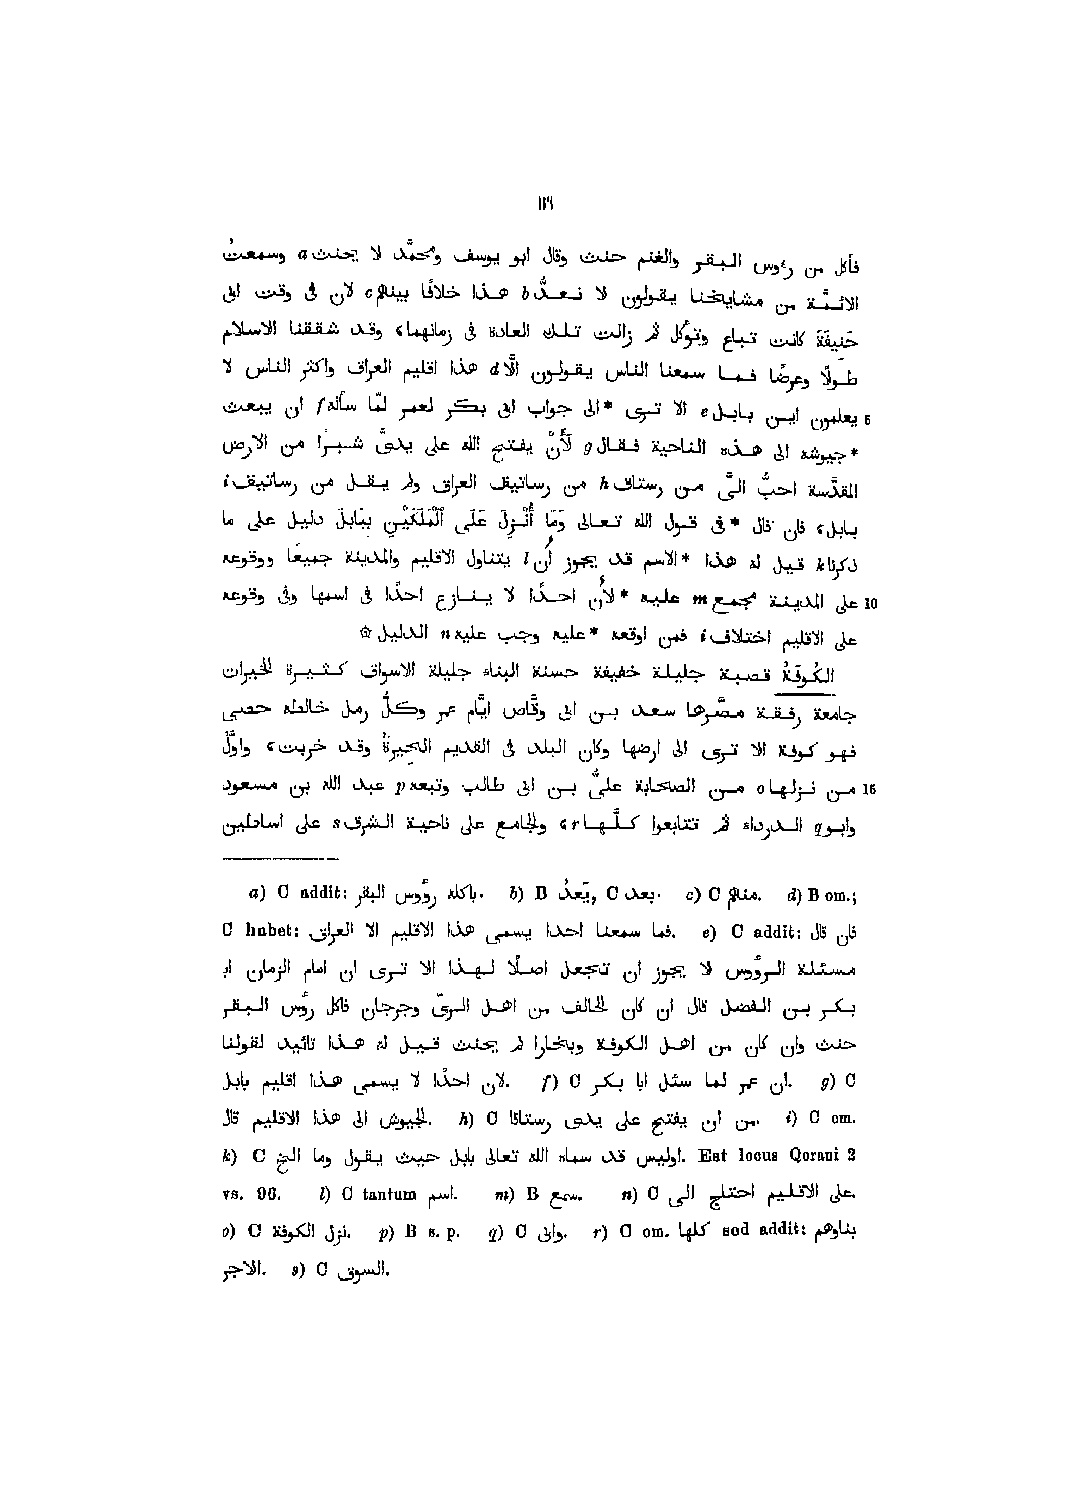 ١١٦
فأكل من رؤس البقر والغنم حنث وقال ابو يوسف ومحمّد لا يحنث a وسمعتُ
الائمّة من مشايخنا يقولون لا نعدُّ b هذا خلافًا بينهم c لان فى وقت ابى
حَنيفَةَ كانت تباع وتؤكل ثم زالت تلك العادة فى زمانهماء وقد شققنا الاسلام
طولًا وعرضًا فما سمعنا الناس يقولون الّا d هذا اقليم العراق واكثر الناس لا
5 يعلمون اين بابل e الا ترى *الى جواب ابى بكر لعمر لمّا سأله f ان يبعث
*جيوشه الى هذه الناحية فقال g لَأَنْ يفتح الله على يدىَّ شبرًا من الارض
المقدّسة احبُّ الىَّ من رستاف h من رساتيق العراق ولم يقل من رساتيق i
بابلء فان قال *فى قول الله تعالى وَمَا أُنْزِلَ عَلَى ٱلْمَلَكَيْنِ بِبَابِلَ دليل على ما
ذكرناه k قيل له هذا *الاسم قد يجوز أن l يتناول الاقليم والمدينة جميعًا ووقوعه
10 على المدينة مجمع m عليه *لأن احدًا لا ينازع احدًا فى اسمها وفى وقوعه
على الاقليم اختلاف i فمن اوقعه *عليه وجب عليه n الدليل ۞
الكُوفَةُ قصبة جليلة خفيفة حسنة البناء جليلة الاسواق كثيرة الخيرات
جامعة رفقة مصّرها سعد بن ابى وقّاص ايّام عمر وكلُّ رمل خالطه حصى
فهو كوفة الا ترى الى ارضها وكان البلد فى القديم الحِيرةُ وقد خربتء واوّل
15 من نزلها o من الصحابة علىُّ بن ابى طالب وتبعه p عبد الله بن مسعود
وابو q الدرداء ثم تتابعوا كلّها r ء والجامع على ناحية الشرق s على اساطين
a) C addit: باكله رؤُوس البقر. b) B يَعَدُ, C بعد. c) C منهم. d) B om.;
C habet: فما سمعنا احدا يسمى هذا الاقليم الا العراق. e) C addit: فان قال
مسئلة الرؤوس لا يجوز ان تجعل اصلًا لهذا الا ترى ان امام الزمان ابا
بكر بن الفضل قال ان كان الحالف من اهل الرىّ وجرجان فاكل رؤُس البقر
حنث وان كان من اهل الكوفة وبخارا لم يحنث قيل له هذا تائيد لقولنا
لان احدًا لا يسمى هذا اقليم بابل. f) C ان عمر لما سئل ابا بكر. g) C
الجيوش الى هذا الاقليم قال. h) C من ان يفتح على يدى رستاقا. i) C om.
k) C اوليس قد سماه الله تعالى بابل حيث يقول وما الخ. Est locus Qorani 2
vs. 96. l) C tantum اسم. m) B سمع. n) C على الاقليم احتاج الى.
o) C نزل الكوفة. p) B s. p. q) C وابى. r) C om. كلها sed addit: بناوهم
الاجر. s) C السوق.